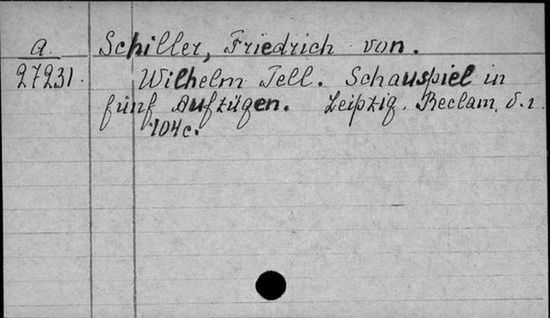 a Schiller, Friedrich von.
27231. Wilhelm Tell. Schauspiel in
fünf Aufzügen. Leipzig. Reclam.
104c.